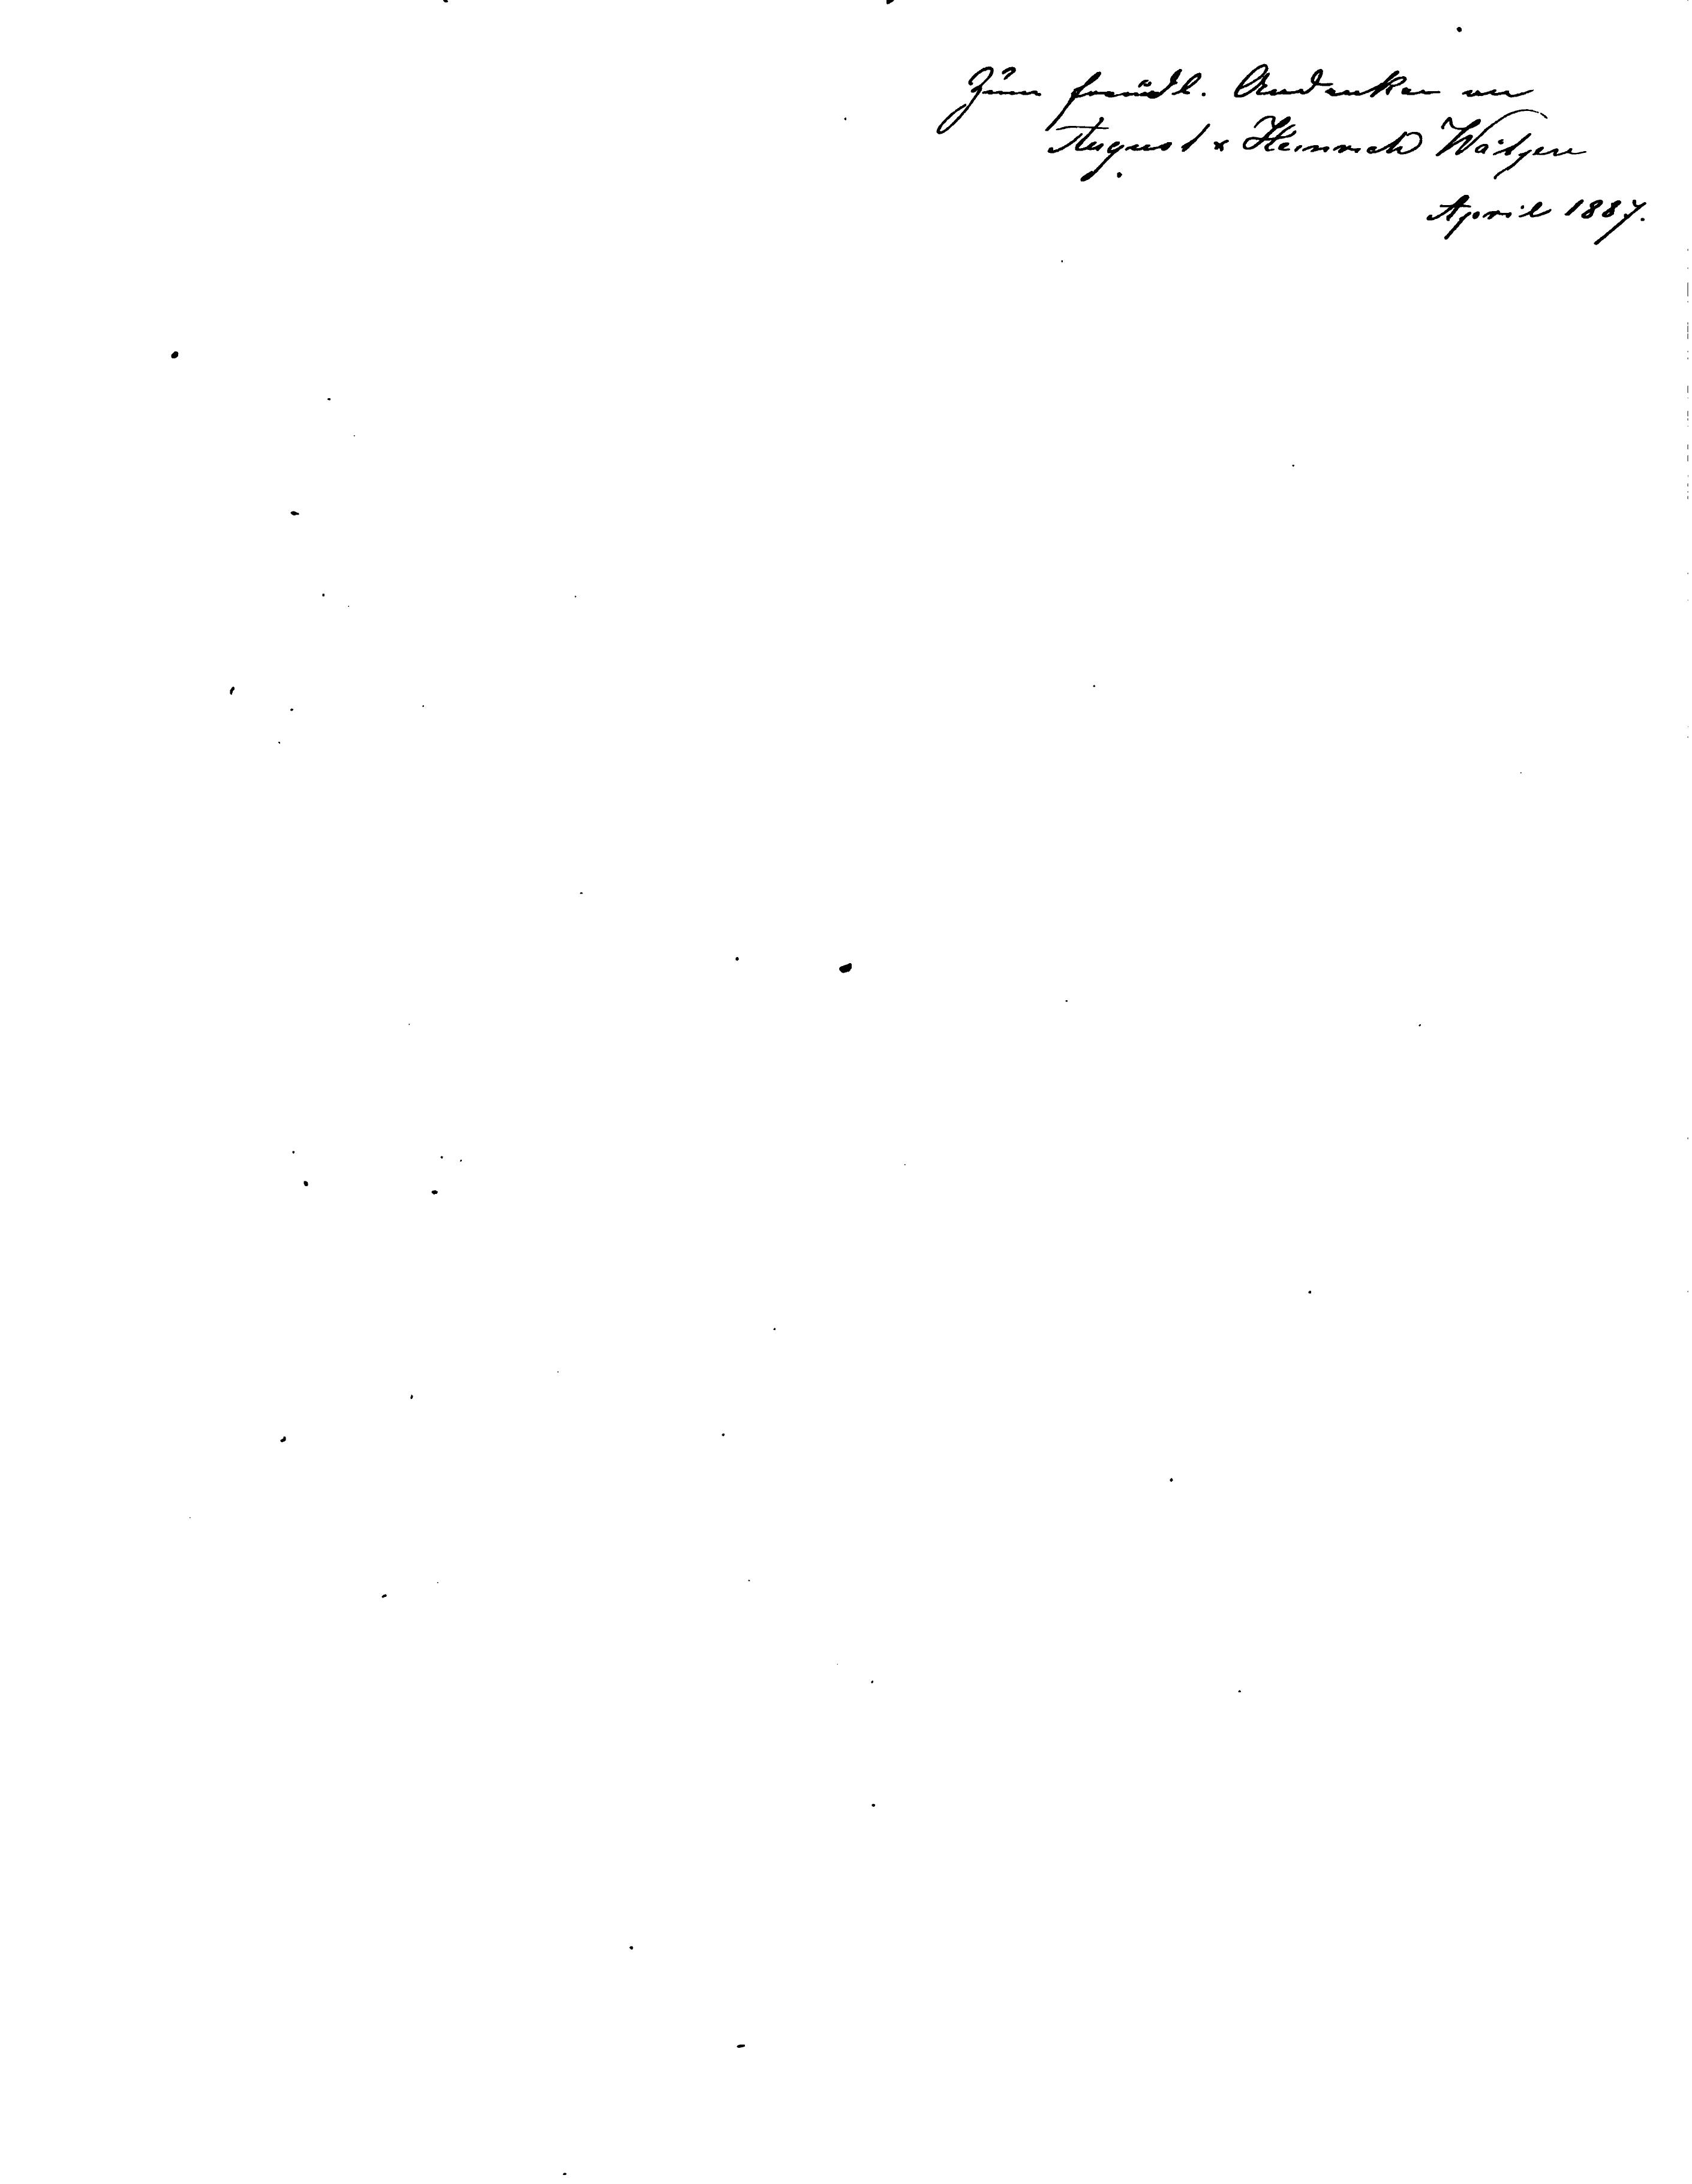 Zum freundl. Andenken an
August & Heinrich Wätjen
April 1887.